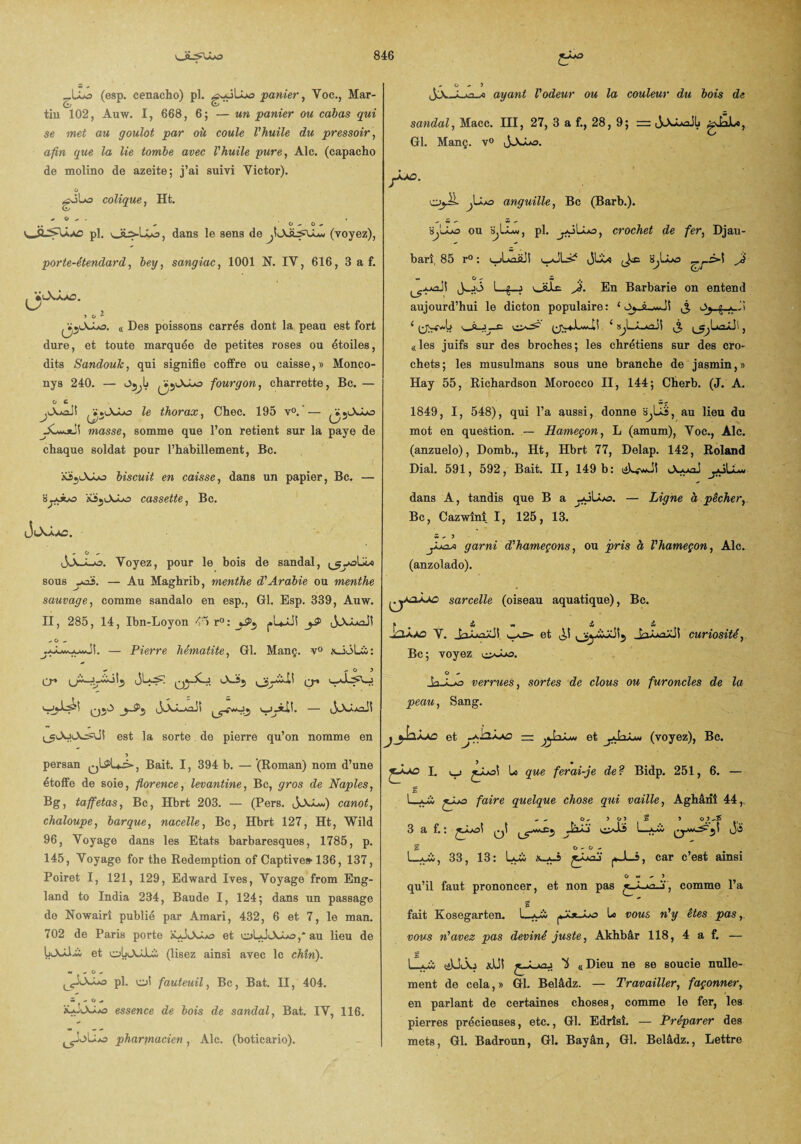 صنجق 846 صنع
صناج (esp. cenacho) pl. صنانيج panier, Voc., Mar-
tin 102, Auw. I, 668, 6; — un panier ou cabas qui
se met au goulot par où coule l'huile du pressoir,
afin que la lie tombe avec l'huile pure, Alc. (capacho
de molino de azeite; j'ai suivi Victor).
صانج colique, Ht.
صنجق pl. صناجق, dans le sens de سنجقدار (voyez),
porte-étendard, bey, sangiac, 1001 N. IV, 616, 3 a f.
صندق.
صندوق. « Des poissons carrés dont la peau est fort
dure, et toute marquée de petites roses ou étoiles,
dits Sandouk, qui signifie coffre ou caisse, » Monco-
nys 240. — صندوق بارود fourgon, charrette, Bc. —
صندوق الصدر le thorax, Chec. 195 v°. — صندوق
العسكر masse, somme que l'on retient sur la paye de
chaque soldat pour l'habillement, Bc.
صندوقة biscuit en caisse, dans un papier, Bc. —
صندوقة صغيرة cassette, Bc.
صندل.
صندل. Voyez, pour le bois de sandal, مقاصيرى
sous قصر. — Au Maghrib, menthe d'Arabie ou menthe
sauvage, comme sandalo en esp., Gl. Esp. 339, Auw.
II, 285, 14, Ibn-Loyon 45 r°: الصندل هو النمام وهو
السيسنبر. — Pierre hématite, Gl. Manç. v° شاذنه:
من الشرق وقد يكون بجبال الأندلس من
أحجار وهو دون الصندل وليس بالغرب. — الصندل
الحديدى est la sorte de pierre qu'on nomme en
persan خماهان, Bait. I, 394 b. — (Roman) nom d'une
étoffe de soie, florence, levantine, Bc, gros de Naples,
Bg, taffetas, Bc, Hbrt 203. — (Pers. سندل) canot,
chaloupe, barque, nacelle, Bc, Hbrt 127, Ht, Wild
96, Voyage dans les Etats barbaresques, 1785, p.
145, Voyage for the Redemption of Captives 136, 137,
Poiret I, 121, 129, Edward Ives, Voyage from Eng-
land to India 234, Baude I, 124; dans un passage
de Nowairî publié par Amari, 432, 6 et 7, le man.
702 de Paris porte صندليا et صندليات, au lieu de
شنديا et شنديات (lisez ainsi avec le chîn).
صندلى pl. ات fauteuil, Bc, Bat. II, 404.
صندلية essence de bois de sandal, Bat. IV, 116.
صنادلى pharmacien, Alc. (boticario).
مصندل ayant l'odeur ou la couleur du bois de
sandal, Macc. III, 27, 3 a f., 28, 9; = ملطخ بالصندل,
Gl. Manç. v° صندل.
صنر.
صنار الحوت anguille, Bc (Barb.).
صنارة ou سنارة, pl. صنانير, crochet de fer, Djau-
barî, 85 r°: ثم يخرج صنارة على مثال كلاب القصاب
ثم يعلق بها ذيل الصبى. En Barbarie on entend
aujourd'hui le dicton populaire: ‘اليهود فى السفود
‘النصارى فى الصنارة’ ‘المسلمين تحت عريف بالياسمين’,
« les juifs sur des broches; les chrétiens sur des cro-
chets; les musulmans sous une branche de jasmin, »
Hay 55, Richardson Morocco II, 144; Cherb. (J. A.
1849, I, 548), qui l'a aussi, donne قنارة, au lieu du
mot en question. — Hameçon, L (amum), Voc., Alc.
(anzuelo), Domb., Ht, Hbrt 77, Delap. 142, Roland
Dial. 591, 592, Bait. II, 149 b: سنانير لصيد السمك
dans A, tandis que B a صنانير. — Ligne à pêcher,
Bc, Cazwînî I, 125, 13.
مصنر garni d'hameçons, ou pris à l'hameçon, Alc.
(anzolado).
صنصر sarcelle (oiseau aquatique), Bc.
صنط V. حب التصنط et التصنط والتشوق الى curiosité,
Bc; voyez صنت.
صنط verrues, sortes de clous ou furoncles de la
peau, Sang.
صنطير et صنطور = سنطور et سنطير (voyez), Bc.
صنع I. ما أصنع ب que ferai-je de? Bidp. 251, 6. —
صنع شيئا faire quelque chose qui vaille, Aghânî 44,
3 a f.: كل أوجس شيئا قلت نظر وعسى أن أصنع
شيئا, 33, 13: فلم تصنع فيه شيئا, car c'est ainsi
qu'il faut prononcer, et non pas تصنع, comme l'a
fait Kosegarten. ما صنعتم شيئا vous n'y êtes pas,
vous n'avez pas deviné juste, Akhbâr 118, 4 a f. —
لا يصنع الله بذلك شيئا « Dieu ne se soucie nulle-
ment de cela, » Gl. Belâdz. — Travailler, façonner,
en parlant de certaines choses, comme le fer, les
pierres précieuses, etc., Gl. Edrîsî. — Préparer des
mets, Gl. Badroun, Gl. Bayân, Gl. Belâdz., Lettre